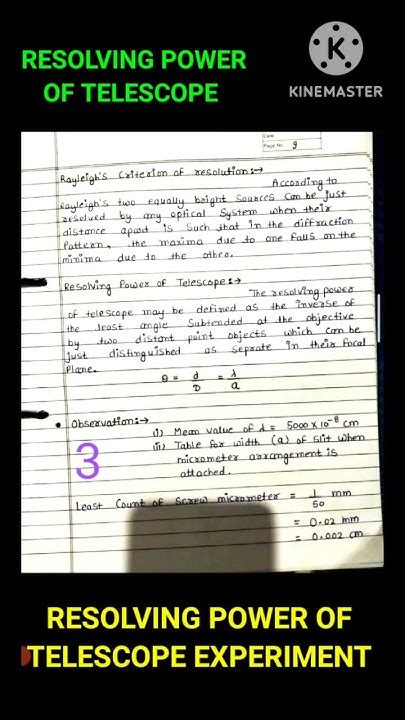 RESOLVING POWER
OF TELESCOPE
K
KINEMASTER
Date
Page No. 9
Rayleigh's Criterion of resolution:→
According to
Rayleigh's two equally bright Sources can be just
resolved by any optical System when their
distance apart is Such that in the diffraction
Pattern, the maxima due to one falls on the
minima due to the other.
Resolving Power of Telescope:→
The resolving power
of telescope may be defined as the inverse of
the least angle Subtended at the objective
by two distant point objects which can be
just distinguished as Seprate in their focal
Plane.
θ = d/D = λ/a
• Observation:→
(i) Mean value of λ = 5000 × 10⁻⁸ cm
(ii) Table for width (a) of Slit when
micrometer arrangement is
attached.
3
Least Count of Screw micrometer = 1/50 mm
= 0.02 mm
= 0.002 cm
RESOLVING POWER OF
TELESCOPE EXPERIMENT